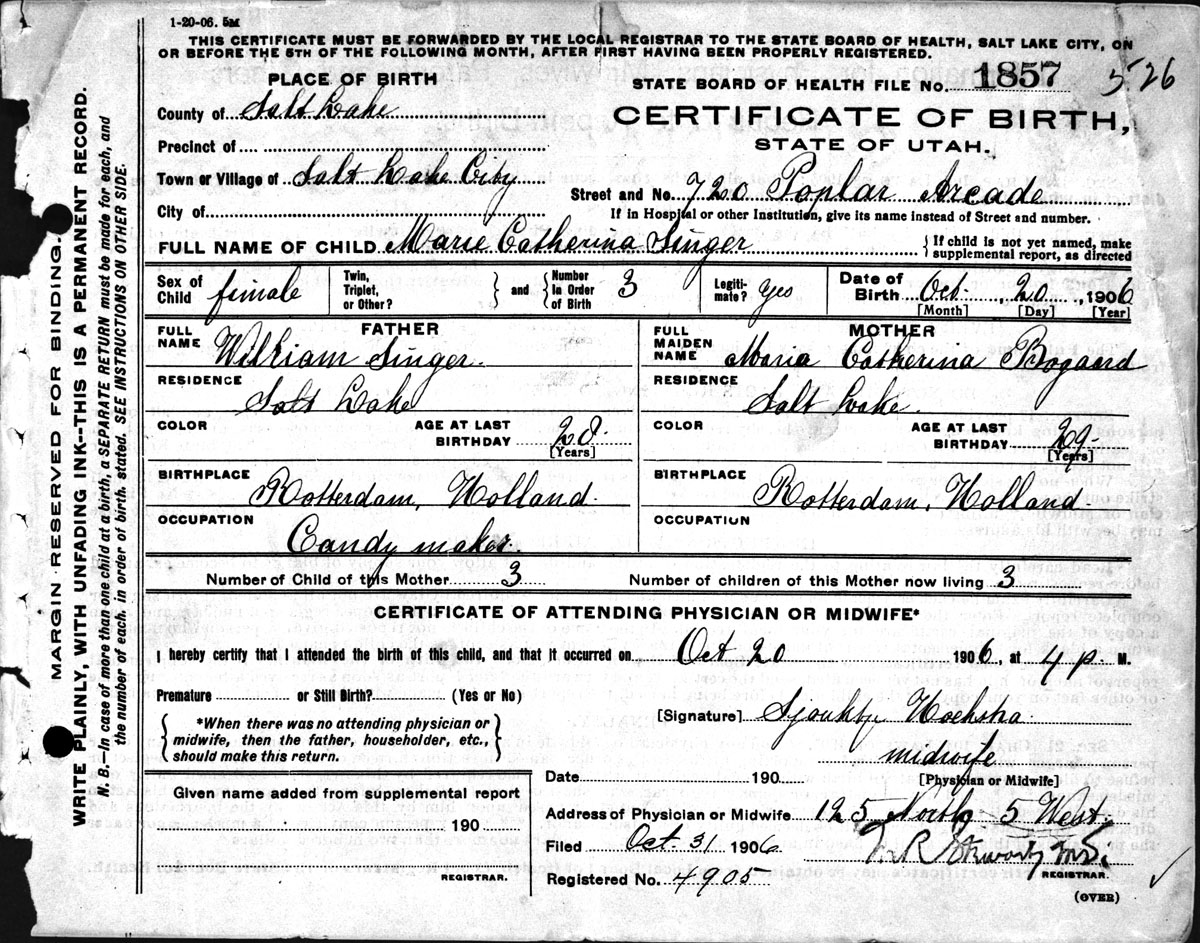 1-20-06. 5M
THIS CERTIFICATE MUST BE FORWARDED BY THE LOCAL REGISTRAR TO THE STATE BOARD OF HEALTH, SALT LAKE CITY, ON
OR BEFORE THE 5TH OF THE FOLLOWING MONTH, AFTER FIRST HAVING BEEN PROPERLY REGISTERED.
PLACE OF BIRTH
STATE BOARD OF HEALTH FILE No. 1857 526
County of Salt Lake
CERTIFICATE OF BIRTH,
STATE OF UTAH.
Precinct of
Town or Village of Salt Lake City
Street and No. 720 Poplar Arcade
City of
If in Hospital or other Institution, give its name instead of Street and number.
FULL NAME OF CHILD Marie Catherina Singer
{If child is not yet named, make
supplemental report, as directed
Sex of Child female
Twin, Triplet, or Other? } and { Number in Order of Birth 3
Legiti- mate? Yes
Date of Birth Oct 20, 1906
[Month] [Day] [Year]
FATHER
FULL NAME William Singer.
RESIDENCE Salt Lake
COLOR
AGE AT LAST BIRTHDAY 28
[Years]
BIRTHPLACE Rotterdam, Holland.
OCCUPATION Candy maker.
MOTHER
FULL MAIDEN NAME Maria Catherina Bogaard
RESIDENCE Salt Lake.
COLOR
AGE AT LAST BIRTHDAY 29
[Years]
BIRTHPLACE Rotterdam, Holland.
OCCUPATION
Number of Child of this Mother 3
Number of children of this Mother now living 3
CERTIFICATE OF ATTENDING PHYSICIAN OR MIDWIFE*
I hereby certify that I attended the birth of this child, and that it occurred on Oct 20 1906, at 4 P. M.
Premature or Still Birth? (Yes or No)
{*When there was no attending physician or
midwife, then the father, householder, etc.,
should make this return.}
[Signature]
midwife
[Physician or Midwife]
Date 190
Given name added from supplemental report
190
REGISTRAR.
Address of Physician or Midwife 125 North 5 West.
Filed Oct 31 1906
REGISTRAR.
Registered No. 4905
(OVER)
MARGIN RESERVED FOR BINDING.
WRITE PLAINLY, WITH UNFADING INK--THIS IS A PERMANENT RECORD.
N. B.--In case of more than one child at a birth, a SEPARATE RETURN must be made for each, and
the number of each, in order of birth, stated. SEE INSTRUCTIONS ON OTHER SIDE.